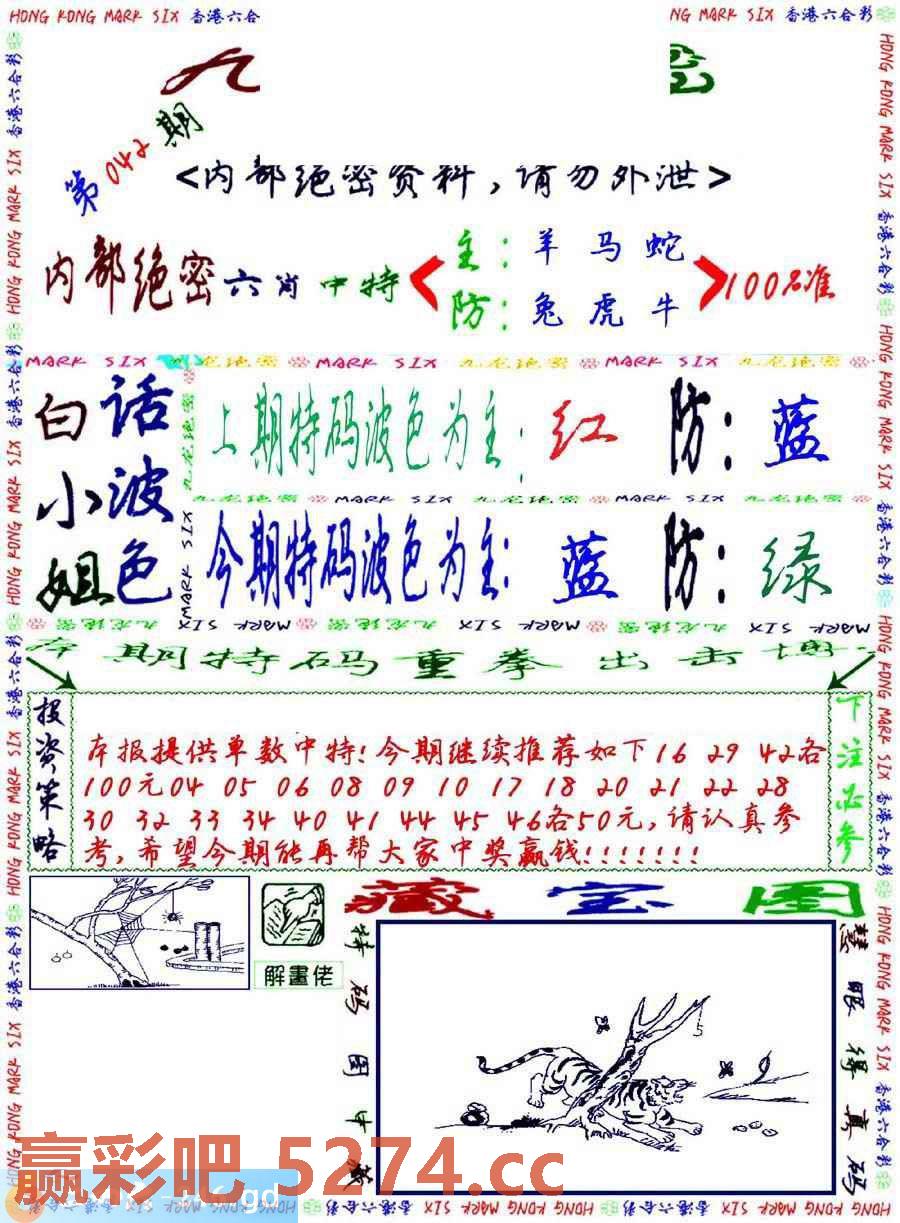 HONG KONG MARK SIX 香港六合
NG MARK SIX 香港六合彩
九
密
第042期
<内部绝密资料,请勿外泄>
内部绝密六肖中特
主:羊马蛇
防:兔虎牛
100%准
MARK SIX 九龙绝密 MARK SIX 九龙绝密 MARK SIX 九龙绝密
白小姐
话波色
上期特码波色为主:红 防:蓝
九龙绝密 MARK SIX 九龙绝密 MARK SIX 九龙绝密
今期特码波色为主:蓝 防:绿
九龙绝密 MARK SIX 九龙绝密 MARK SIX 九龙绝密 MARK SIX
本期特码重拳出击
投资策略
本报提供单数中特!今期继续推荐如下16 29 42各
100元04 05 06 08 09 10 17 18 20 21 22 28
30 32 33 34 40 41 44 45 46各50元,请认真参
考,希望今期能再帮大家中奖赢钱!!!!!!!
下注必参
藏宝图
解畫佬
特码图中藏
慧眼得真码
5
HONG KONG MARK SIX 香港六合彩
赢彩吧 5274.cc